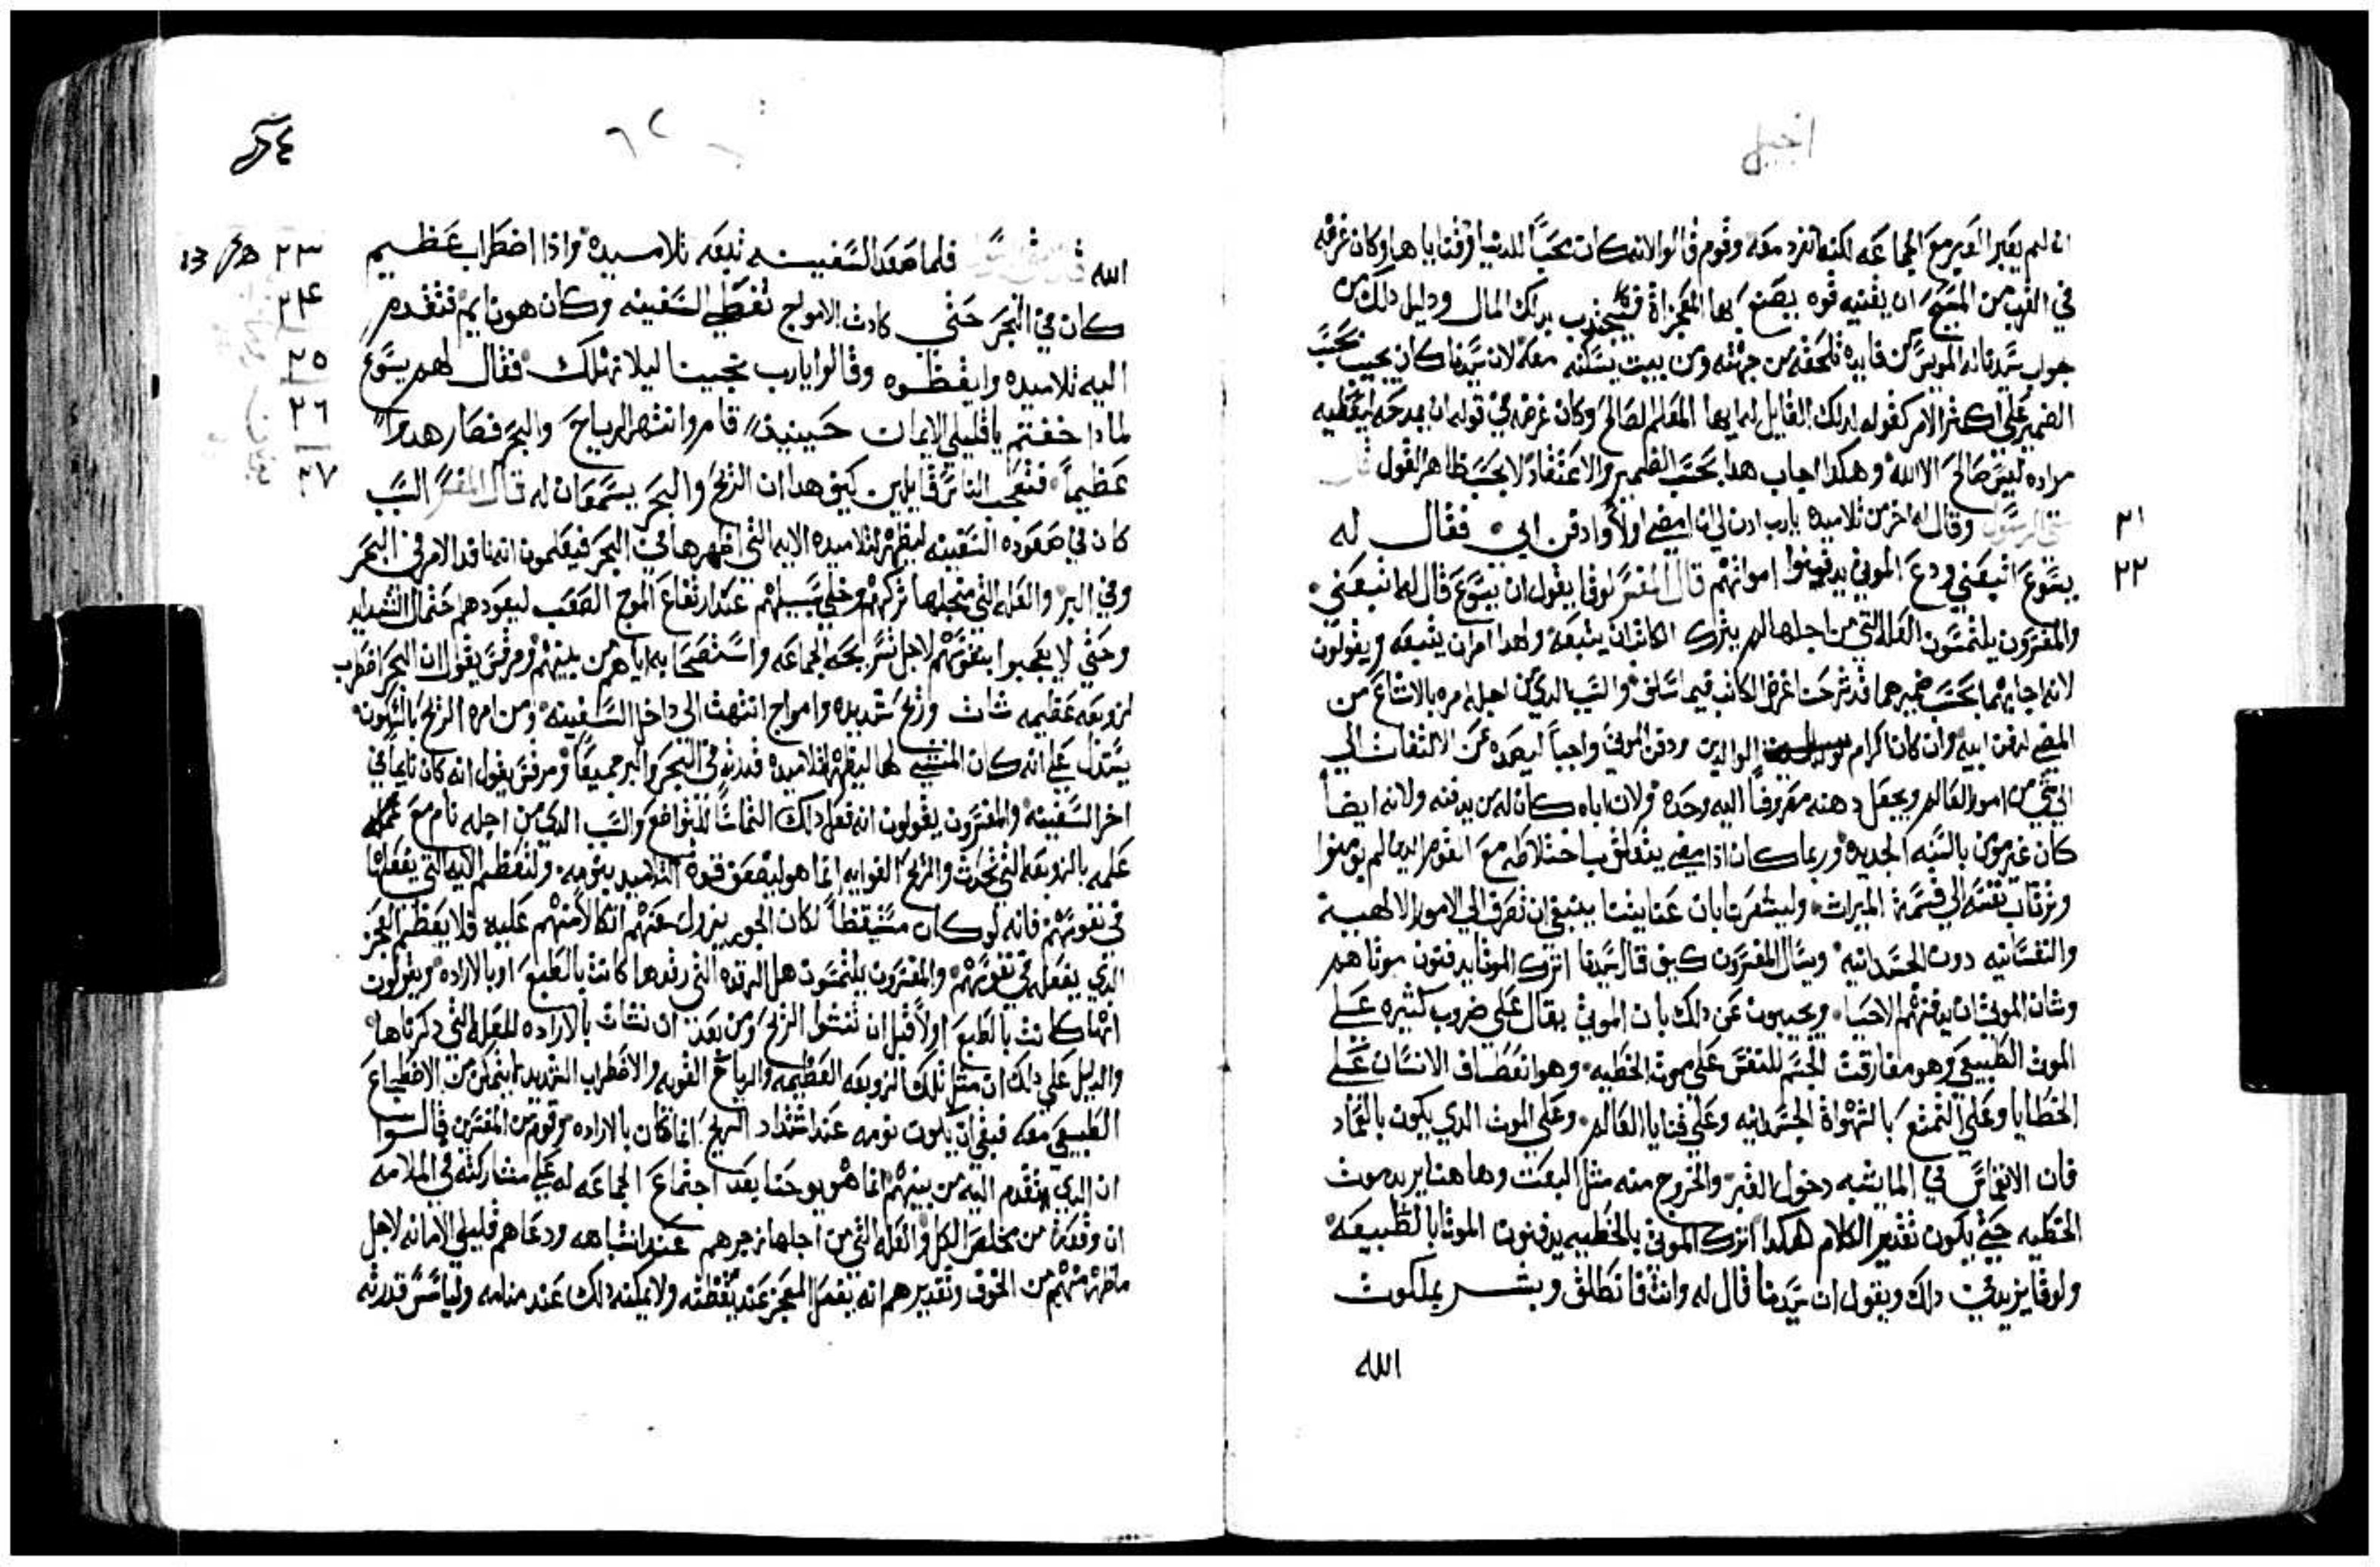 انجيل
ان لم يعبر العبر مع الجماعه لكنه انفرد معه وقوم قالوا لانه كان محباً للدنيا وقناياها وكان غرضه
في القرب من المسيح ان يقنيه قوه يصنع بها المعجزاة فيجذب بذلك المال ودليل ذلك من
جواب سيدنا انه لويس كن فايده تلحقه من جهته ومن بيت يسكنه معه لان سيدنا كان يجيب بحسب
الضمير علي اكثر الامر كقوله لذلك القايل له ايها المعلم الصالح وكان غرضه في قوله ان يمدحه ليعطيه
مراده ليس صالح الا الله وهكدا اجاب هدا بحسب الضمير والاعتقاد لا بحسب ظاهر القول قال
٢١ متي الرسول وقال له اخر من تلاميده يارب ادن لي ان امضي اولاً وادفن ابي فقال له
٢٢ يسوع اتبعني ودع الموتي يدفنوا امواتهم قال المفسر لوقا يقول ان يسوع قال له اتبعني
والمفسرون يلتمسون العله التي من اجلها لم يترك الكاتب ان يتبعه ولهدا امر ان يتبعه ويقولون
لانه اجابهما بحسب ضميرهما قد شرحت اغرض الكاتب فيما سلف والسبب الدي من اجله امره بالاتباع من
المضي لدفن ابيه وان كان اكرام الوالدين ودفن الموتي واجباً ليصده عن الالتفات الي
الي شي من امور العالم ويجعل دهنه مصروفاً اليه وحده ولان اباه كان له من يدفنه ولانه ايضاً
كان غير مومن بالسنه الجديده وربما كان ادا مضي يتعلق باختلاطه مع القوم الدين لم يومنوا
وترتاب نفسه الي قسمة الميراث وليشعرنا بان عنايتنا ينبغي ان تصرف الي الامور الالهيه
والنفسانيه دون الجسدانيه ويسال المفسرون كيف قال سيدنا اترك الموتا يدفنون موتاهم
وشان الموتي ان يدفنهم الاحيا ويجيبون عن دلك بان الموتي يقال علي ضروب كثيره علي
الموت الطبيعي وهو مفارقت الجسم للنفس علي موت الخطيه وهو انعطاف الانسان علي
الخطايا وعلي التمتع بالشهواة الجسدانيه وعلي قنايا العالم وعلي الموت الدي يكون بالعماد
فان الانغماس في الما يشبه دخول القبر والخروج منه مثل البعث وها هنا يريد موت
الخطيه حتي يكون تقدير الكلام هكدا اترك الموتي بالخطييه يدفنون الموتا بالطبيعه
ولوقا يزيد دلك ويقول ان سيدنا قال له وانت فانطلق وبشر بملكوت
الله
الله فلما صعد السفينه تبعه تلاميده واذا اضطراب عظيم ٢٣
كان في البحر حتي كادت الامواج تغطي السفينه وكان هو نايم فتقدم ٢٤
اليه تلاميده وايقظوه وقالوا يارب نجينا ليلا نهلك فقال لهم يسوع ٢٥
لمادا خفتم يا قليلي الايمان حينيذ قام وانتهر الرياح والبحر فصار هدوا ٢٦
عظيماً فتعجب الناس قايلين كيف هدا ان الريح والبحر يسمعان له قال المفسر السبب ٢٧
كان في صعوده السفينه ليظهر لتلاميده الايه التي اظهرها في البحر فيعلمون انه نافد الامر في البحر
وفي البر والعله التي من اجلها تركهم وخلي سبيلهم عند ارتفاع الموج الصعب ليعودهم حتمال الشدايد
وحتي لا يعجبوا بنفوسهم لاجل تسريحه الجماعه واستصحابه اياهم من بينهم ومرقس يقول ان البحر اضطرب
لزوبعه عظيمه ثات وريح شديده وامواج انتهت الي داخل السفينه ومن امره الريح بالسكون
يستدل علي انه كان المنشي لها ليظهر لتلاميده قدرته في البحر والبر جميعاً ومرقس يقول انه كان نايماً في
اخر السفينه والمفسرون يقولون انه فعل دلك التماساً للتواضع والسبب الدي من اجله نام مع
علمه بالزوبعه التي تحدث والريح القوايه انما هو ليضعف قوة التلاميد بنومه ولتعظم الايه التي يفعلها
في نفوسهم فانه لو كان مستيقظاً لكان الجوير يزول عنهم اتكالاً منهم عليه فلا يعظم المعجز
الدي يفعله في نفوسهم والمفسرون يلتمسون هل الرقده التي رقدها كانت بالطبع او بالاراده ويقولون
انها كانت بالطبع اولاً قبل ان تنشوا الريح ومن بعد ان نشات بالاراده للعله التي دكرناها
والدليل علي دلك ان مثل تلك الزوبعه العظيمه والرياح القويه والاضطراب الشديد لا يتمكن من الاضطجاع
الطبيعي معه فبقي ان يكون نومه عند اشتداد الريح انما كان بالاراده وقوم من المفسرين قالوا
ان الدي تقدم اليه من بينهم انما هو يوحنا بعد اجتماع الجماعه له علي مشاركته في الملامه
ان وقعة من يخلص الكل والعله التي من اجلها زجرهم عند انتباهه ودعاهم قليلي الامانه لاجل
ما ظهر منهم من الخوف وتقديرهم انه يفعل المعجز عند يقظته ولا يمكنه دلك عند منامه ولياسس قدرته